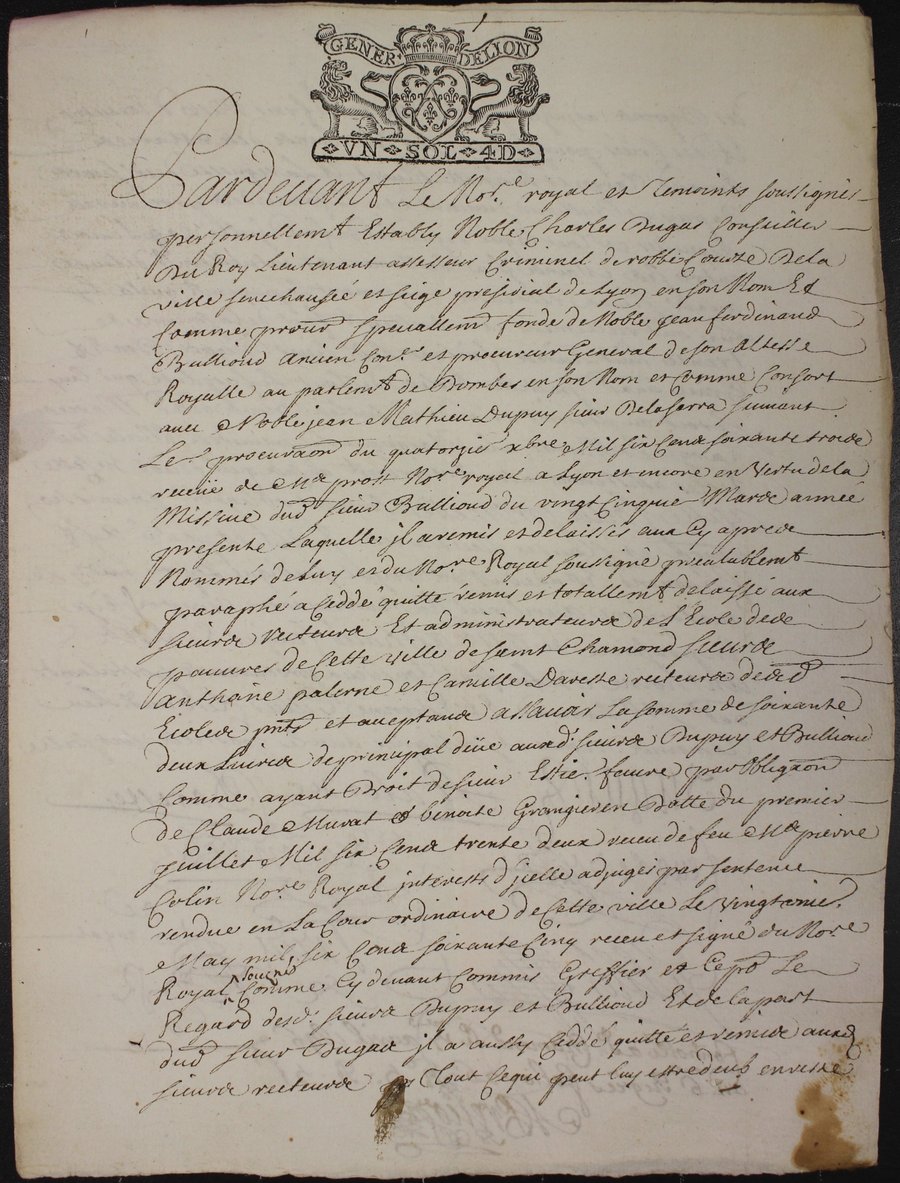 GENER DELION
VN SOL 4D
Pardevant Le No.re royal et Temoints soussignés
personnellemt Estably Noble Charles Dugas Conseiller
Du Roy Lieutenant assesseur Criminel de robbe Courte Dela
ville senechausée et siege presidial de Lyon en son Nom Et
Comme procur speciallemt fondé de Noble jean ferdinand
Bullioud ancien Con.er et procureur General de son Altesse
Royalle au parlemt de Dombes en son Nom et Comme Consort
avec Noble jean Mathieu Dupuy sieur Delaserra suivant
Le procuraon du quatorzie xbre Mil six Cens soixante troize
receüe de Me prost No.re royal a Lyon et encore en Vertu dela
Missive dud sieur Bullioud du vingt Cinquie Mars année
presente Laquelle jl a remis et delaissés aux Cy apres
Nommés de Luy et du No.re Royal soussigné prealablemt
paraphé a Ceddé quitté remis et totallemt delaissé aux
sieurs recteurs Et administrateurs de L'Ecole des
pauvres de Cette ville de saint Chamond sieurs
anthoine palerne et Camille Dareste recteurs desd
Ecoles pnts et aceptans assavoir La somme de soixante
deux Livres de principal deüe auxd sieurs Dupuy et Bullioud
Comme ayant Droit de sieur Estie. faure par Obligaon
de Claude Murat & benoite Grangier en Datte du premier
juillet Mil six Cens trente deux receu de feu Me pierre
Colin No.re Royal interests d'jcelle adjugés par sentence
rendue en La Cour ordinaire de Cette ville Le vingt
May mil six Cens soixante Cinq receu et signé du No.re
Royal soussigné Comme Cy devant Commis Greffier et Cepd Le
Regard desd. sieurs Dupuy et Bullioud Et de la part
dud sieur Dugas jl a aussy Ceddé quitté et remis auxd
sieurs recteurs Tout Cequi peut luy estre deub en reste